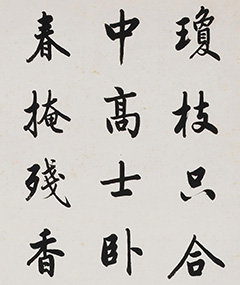 瓊枝只合
中高士臥
春掩殘香